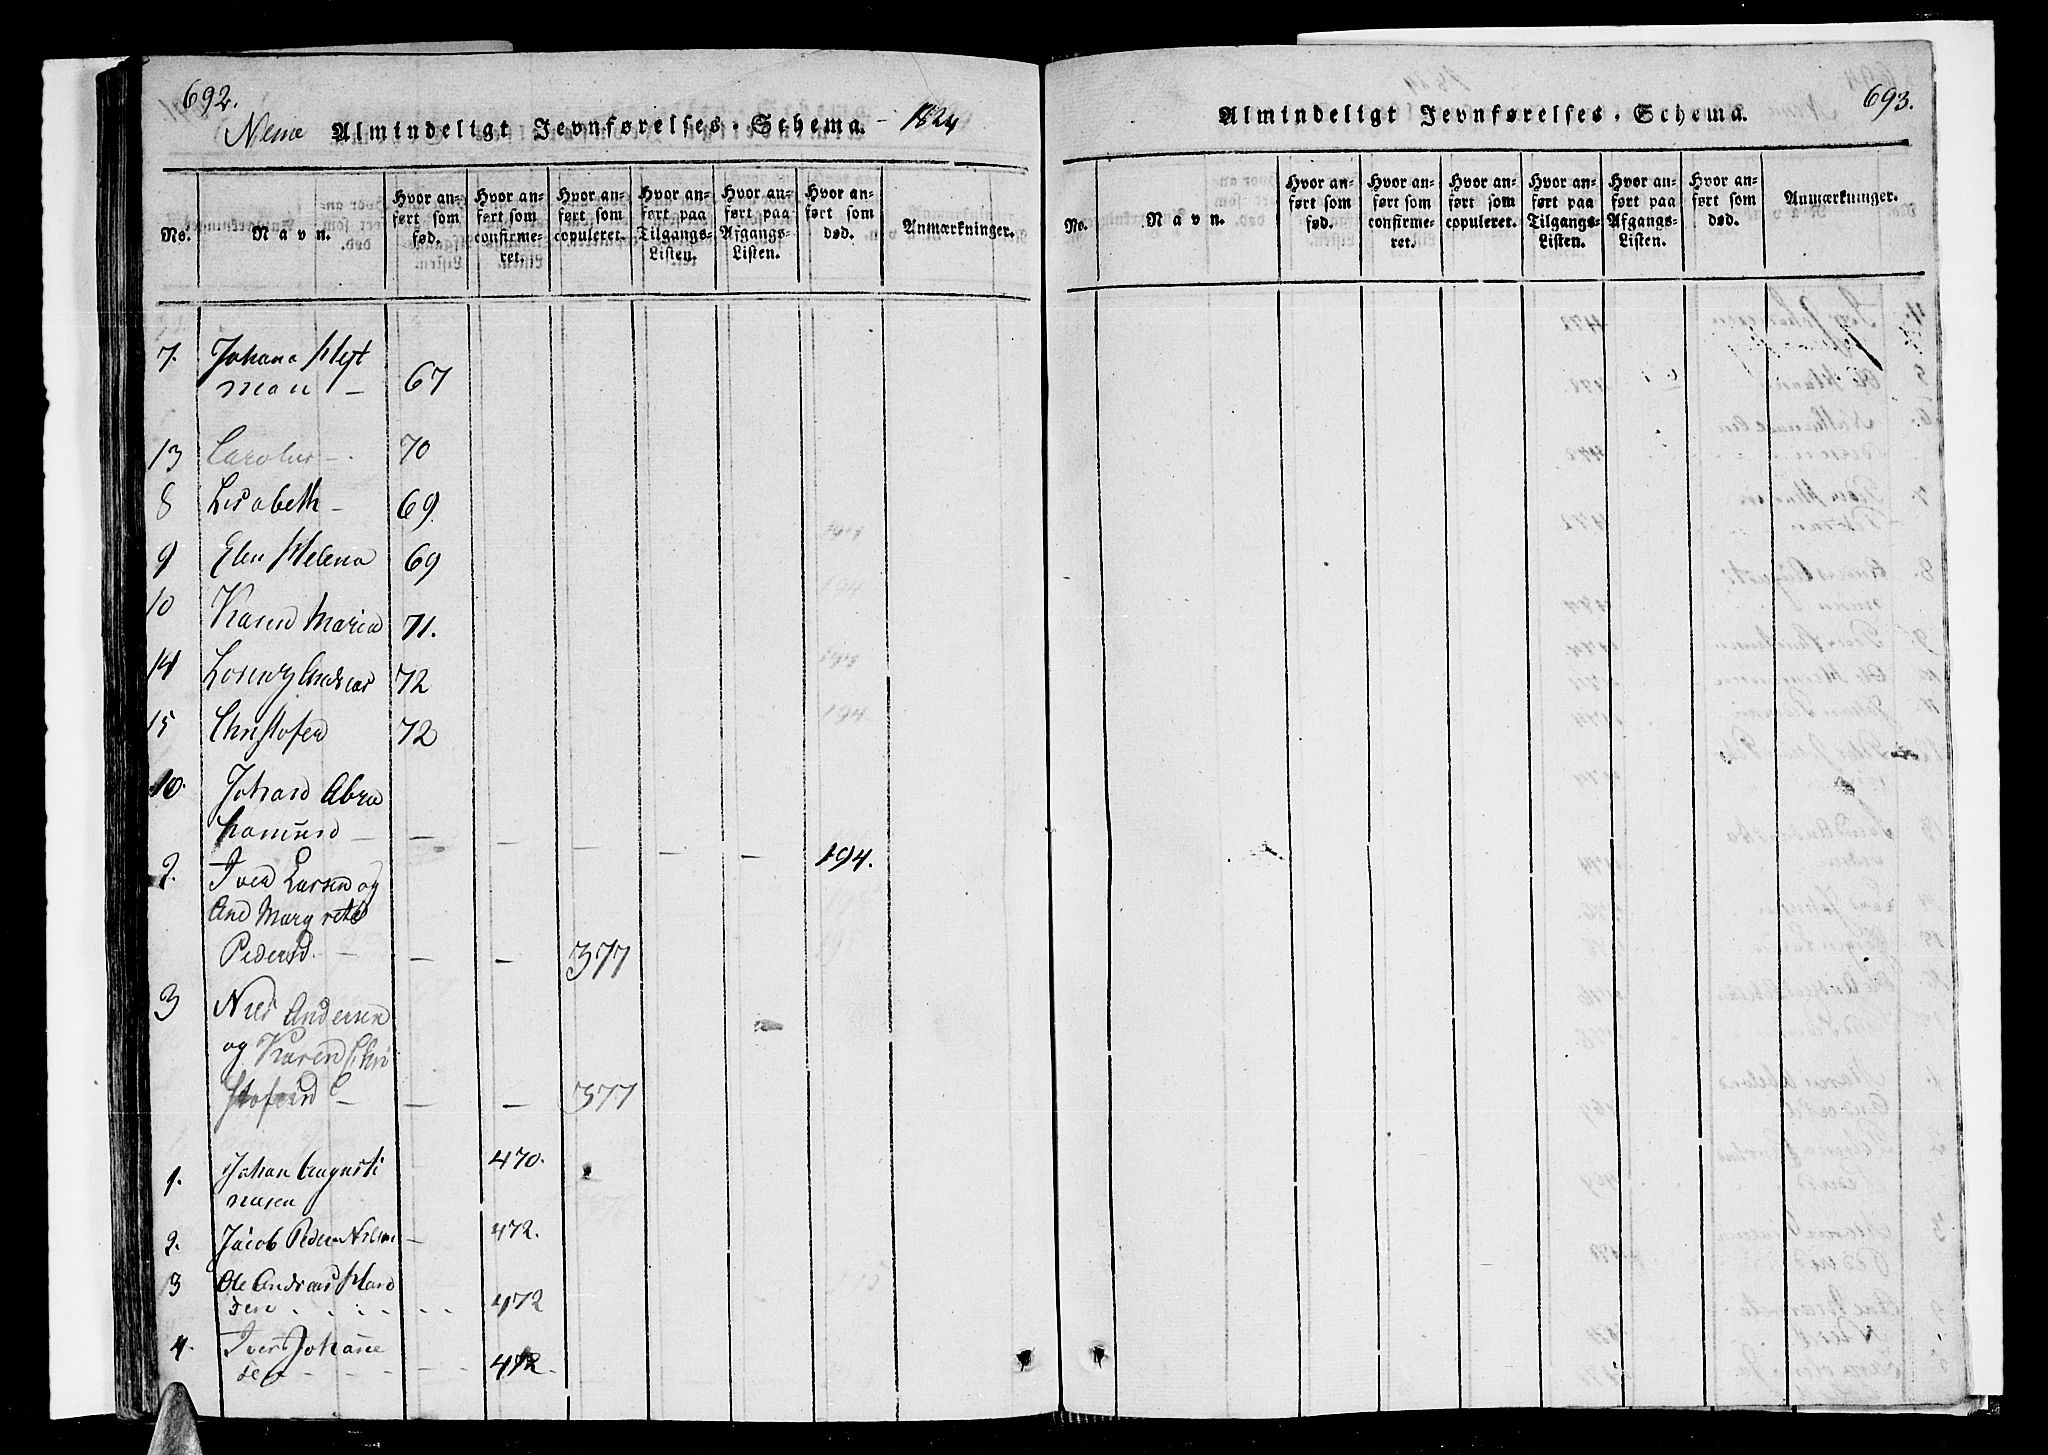 692.
Nesne Almindeligt Jevnførelses-Schema. - 1824
No. Navn. Hvor anført som fød. Hvor anført som confirmeret. Hvor anført som copuleret. Hvor anført paa Tilgangs-Listen. Hvor anført paa Afgangs-Listen. Hvor anført som død. Anmærkninger.
7. Johana Heft
man - 67
13 Carolus -. 70
8 Lisabeth - 69.
9 Elen Helena 69
10 Karen Maria 71.
14 Lorentz Andreas 72
15 Christofer 72
10. Johan Abra
hamsen - - - - - - 194.
2. Iver Larsen og
Ane Margrete
Pedersd. - - - 377
3 Niels Andersen
og Karen Chri
stofersd - - - 377
1. Johan Augusti
nusen - 470.
2. Jacob Peder Nilsen - 472.
3 Ole Andreas Han
sen . . . . . 472
4. Iver Johane
sen - - - - - - 472.
693.
Almindeligt Jevnførelses-Schema.
No. Navn. Hvor anført som fød. Hvor anført som confirmeret. Hvor anført som copuleret. Hvor anført paa Tilgangs-Listen. Hvor anført paa Afgangs-Listen. Hvor anført som død. Anmærkninger.